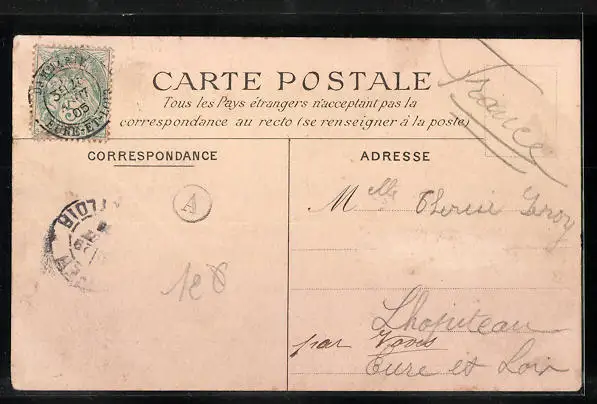 CARTE POSTALE
Tous les Pays étrangers n'acceptent pas la
correspondance au recto (se renseigner à la poste)
France
CORRESPONDANCE
ADRESSE
A
EURE-ET-LOIR
05
Mlle Leroy
Lhopiteau
par Voves
Eure et Loir